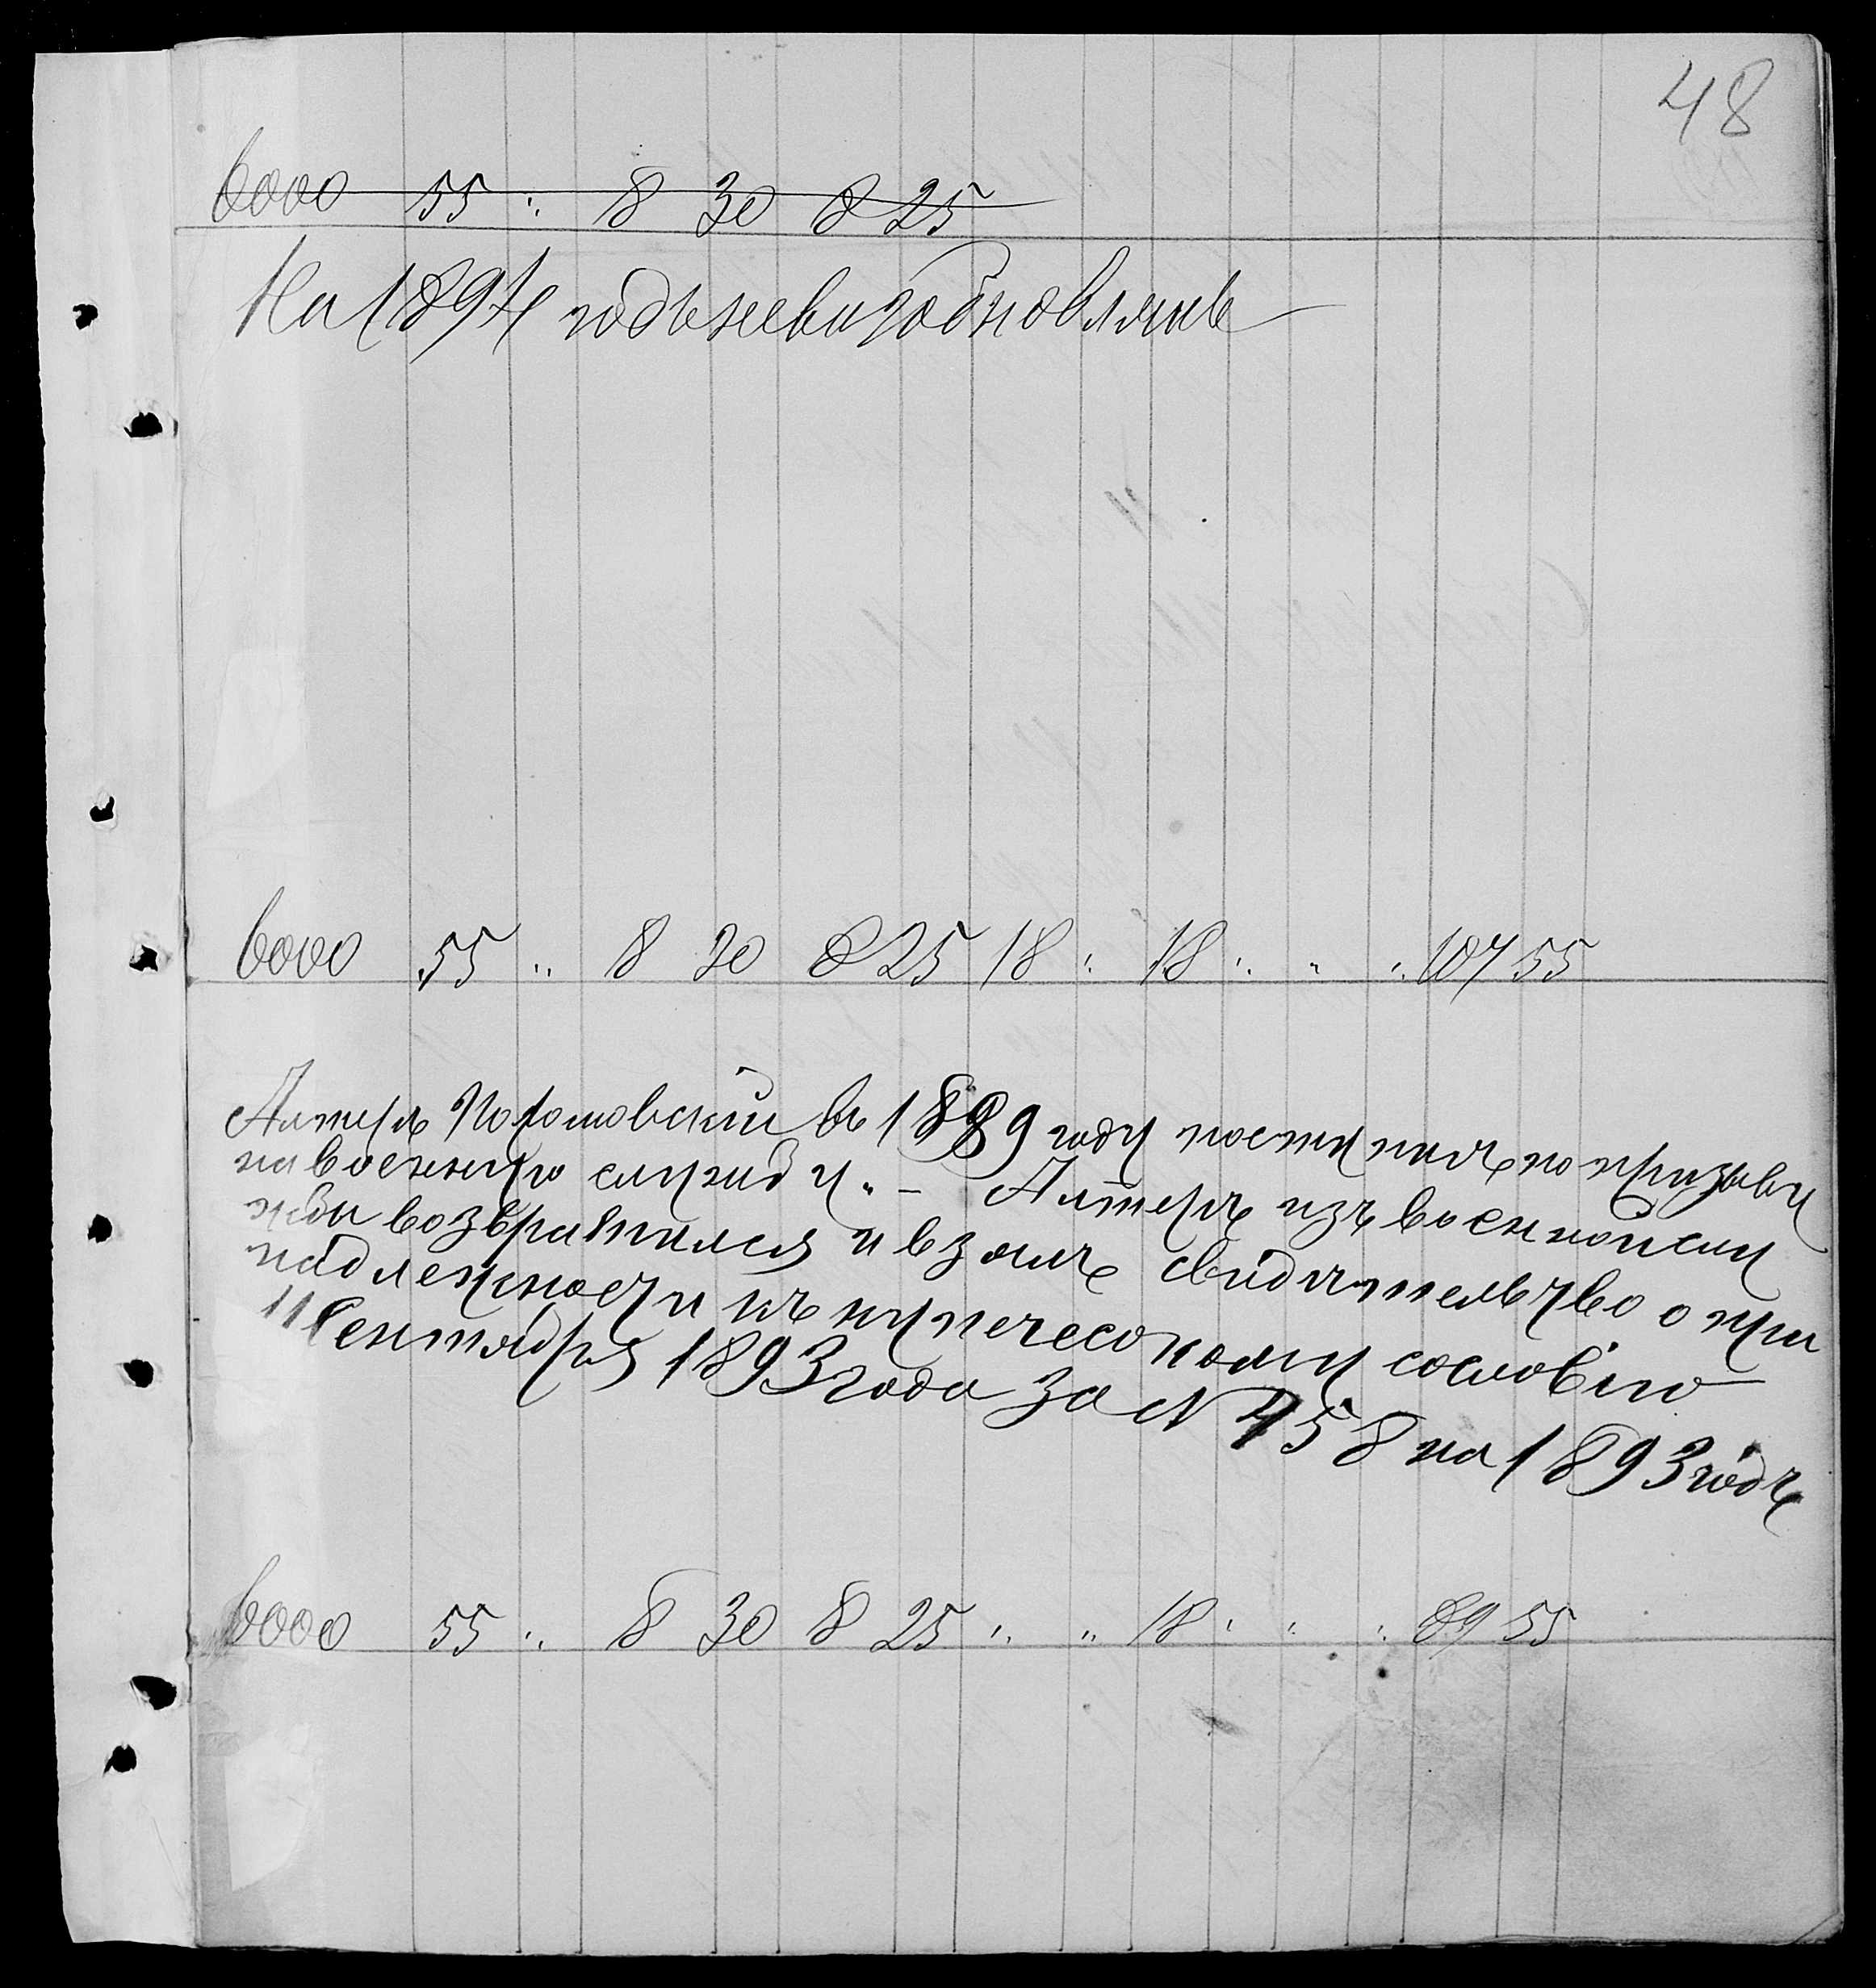 48
6000 55 " 8 30 8 25
На 1894 годъ не возобновлялъ
6000 55 " 8 30 8 25 18 " 18 " " " 107 55
Алтеръ въ 1889 году поступилъ по призыву
на военную службу. – Алтеръ изъ военной слу
жбы возвратился и взялъ свидѣтельство о при
надлежности къ купеческому сословію
11 Сентября 1893 года за № 458 на 1893 годъ
6000 55 " 8 30 8 25 " " 18 " " " 89 55